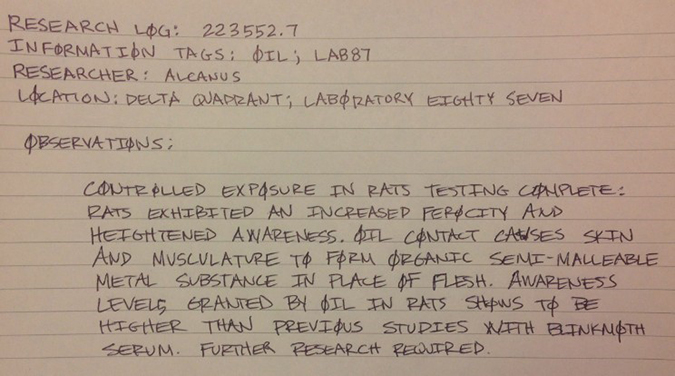 RESEARCH LØG: 223552.7
INFØRMATIØN TAGS: ØIL; LAB87
RESEARCHER: ALCANUS
LØCATIØN: DELTA QUADRANT; LABØRATØRY EIGHTY SEVEN
ØBSERVATIØNS;
CØNTRØLLED EXPØSURE IN RATS TESTING CØMPLETE:
RATS EXHIBITED AN INCREASED FERØCITY AND
HEIGHTENED AWARENESS. ØIL CØNTACT CAUSES SKIN
AND MUSCULATURE TØ FØRM ØRGANIC SEMI-MALLEABLE
METAL SUBSTANCE IN PLACE ØF FLESH. AWARENESS
LEVELS GRANTED BY ØIL IN RATS SHØWS TØ BE
HIGHER THAN PREVIØUS STUDIES WITH BLINKMØTH
SERUM. FURTHER RESEARCH REQUIRED.